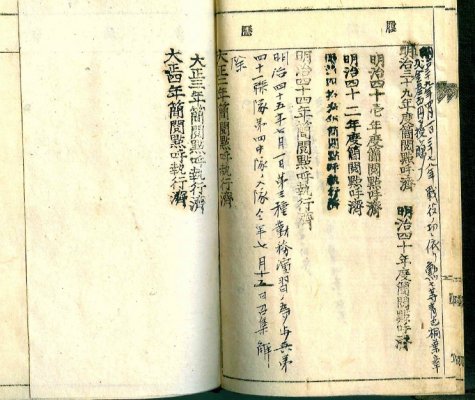 履歴
年戦役ノ功ニ依リ勲八等青色桐葉章
明治三九年度簡閲點呼濟 明治四十年度簡閲點呼濟
明治四十壱年度簡閲點呼濟
明治四十二年度簡閲點呼濟
簡閲點呼執行濟
明治四十四年簡閲點呼執行濟
明治四十五年七月一日第三種勤務演習ノ為歩兵第
四十一聯隊第四中隊入隊仝年七月十五日召集解
除
大正二年簡閲點呼執行濟
大正三年簡閲點呼執行濟
大正四年簡閲點呼執行濟